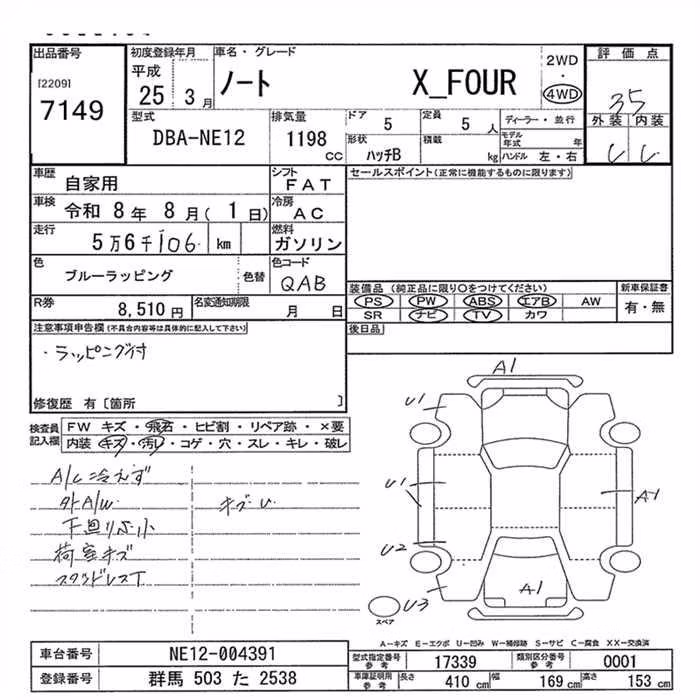 出品番号
[2209]
7149
初度登録年月
平成
25 3月
車名・グレード
ノート X_FOUR
2WD
・
4WD
評価点
3.5
外装 内装
型式
DBA-NE12
排気量
1198
CC
ドア
5
定員
5 人
形状
ハッチB
積載
kg
ディーラー・並行
モデル年式 年
ハンドル 左・右
車歴
自家用
シフト
FAT
車検
令和 8年 8月( 1日)
冷房
AC
走行
5万6千106 km
燃料
ガソリン
色
ブルーラッピング
色替
色コード
QAB
R券
8,510円
名変通知期限
月 日
セールスポイント(正常に機能するものに限ります)
装備品 (純正品に限り〇をつけてください)
PS PW ABS エアB AW
SR ナビ TV カワ
新車保証書
有・無
後日品
注意事項申告欄(不具合内容等は具体的に記入して下さい)
・ラッピング付
修復歴 有〔箇所 〕
検査員記入欄
FW キズ・飛石・ヒビ割・リペア跡・×要
内装 キズ・汚レ・コゲ・穴・スレ・キレ・破レ
A/C冷えず
外A/W
キズU
下回りサ小
荷室キズ
スタッドレスT
A1
U1
U1
A1
U2
A1
U3
スペア
A-キズ E-エクボ U-凹み W-補修跡 S-サビ C-腐食 XX-交換済
車台番号
NE12-004391
登録番号
群馬 503 た 2538
型式指定番号 参考
17339
類別区分番号 参考
0001
車庫証明用 参考
長さ 410 cm 幅 169 cm 高さ 153 cm